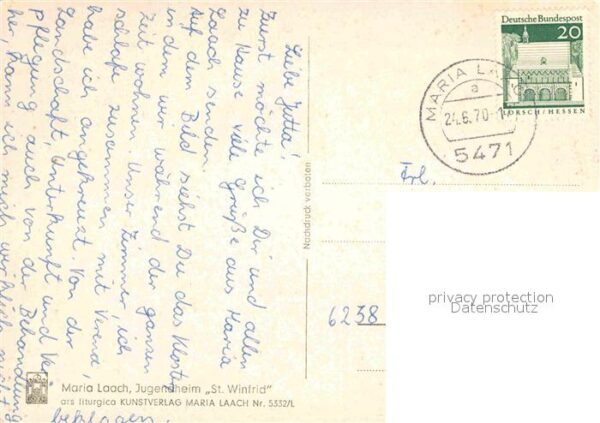 Liebe Jutta!
Zuerst möchte ich Dir und allen
zu Hause viele Grüße aus Maria
Laach senden.
Auf dem Bild siehst Du das Kloster
in dem wir während der ganzen
Zeit wohnen. Unser Zimmer, ich
schlafe zusammen mit Verena,
habe ich angekreuzt. Von der
Landschaft, Unterkunft und Ver-
pflegung, auch von der Behandlung
her, kann ich mich wirklich nicht
beklagen.
Maria Laach, Jugendheim „St. Winfrid"
ars liturgica KUNSTVERLAG MARIA LAACH Nr. 5332/L
Nachdruck verboten
Deutsche Bundespost
20
LORSCH/HESSEN
MARIA LAACH
a
24.6.70-1
5471
Frl.
6238
privacy protection
Datenschutz